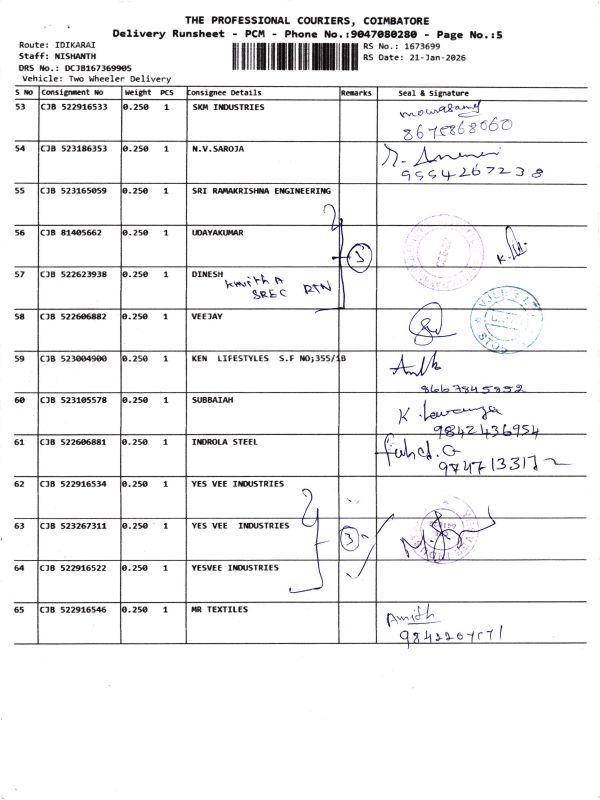 THE PROFESSIONAL COURIERS, COIMBATORE
Delivery Runsheet - PCM - Phone No.:9047080280 - Page No.:5
Route: IDIKARAI
RS No.: 1673699
Staff: NISHANTH
RS Date: 21-Jan-2026
DRS No.: DCJB167369905
Vehicle: Two Wheeler Delivery
S No Consignment No Weight PCS Consignee Details Remarks Seal & Signature
53 CJB 522916533 0.250 1 SKM INDUSTRIES
54 CJB 523186353 0.250 1 N.V.SAROJA
9554267238
55 CJB 523165059 0.250 1 SRI RAMAKRISHNA ENGINEERING
56 CJB 81405662 0.250 1 UDAYAKUMAR
3
57 CJB 522623938 0.250 1 DINESH
SREC RTN
58 CJB 522606882 0.250 1 VEEJAY
59 CJB 523004900 0.250 1 KEN LIFESTYLES S.F NO;355/1B
8667845852
60 CJB 523105578 0.250 1 SUBBAIAH
9842436954
61 CJB 522606881 0.250 1 INDROLA STEEL
62 CJB 522916534 0.250 1 YES VEE INDUSTRIES
63 CJB 523267311 0.250 1 YES VEE INDUSTRIES
3
64 CJB 522916522 0.250 1 YESVEE INDUSTRIES
65 CJB 522916546 0.250 1 MR TEXTILES
Amith